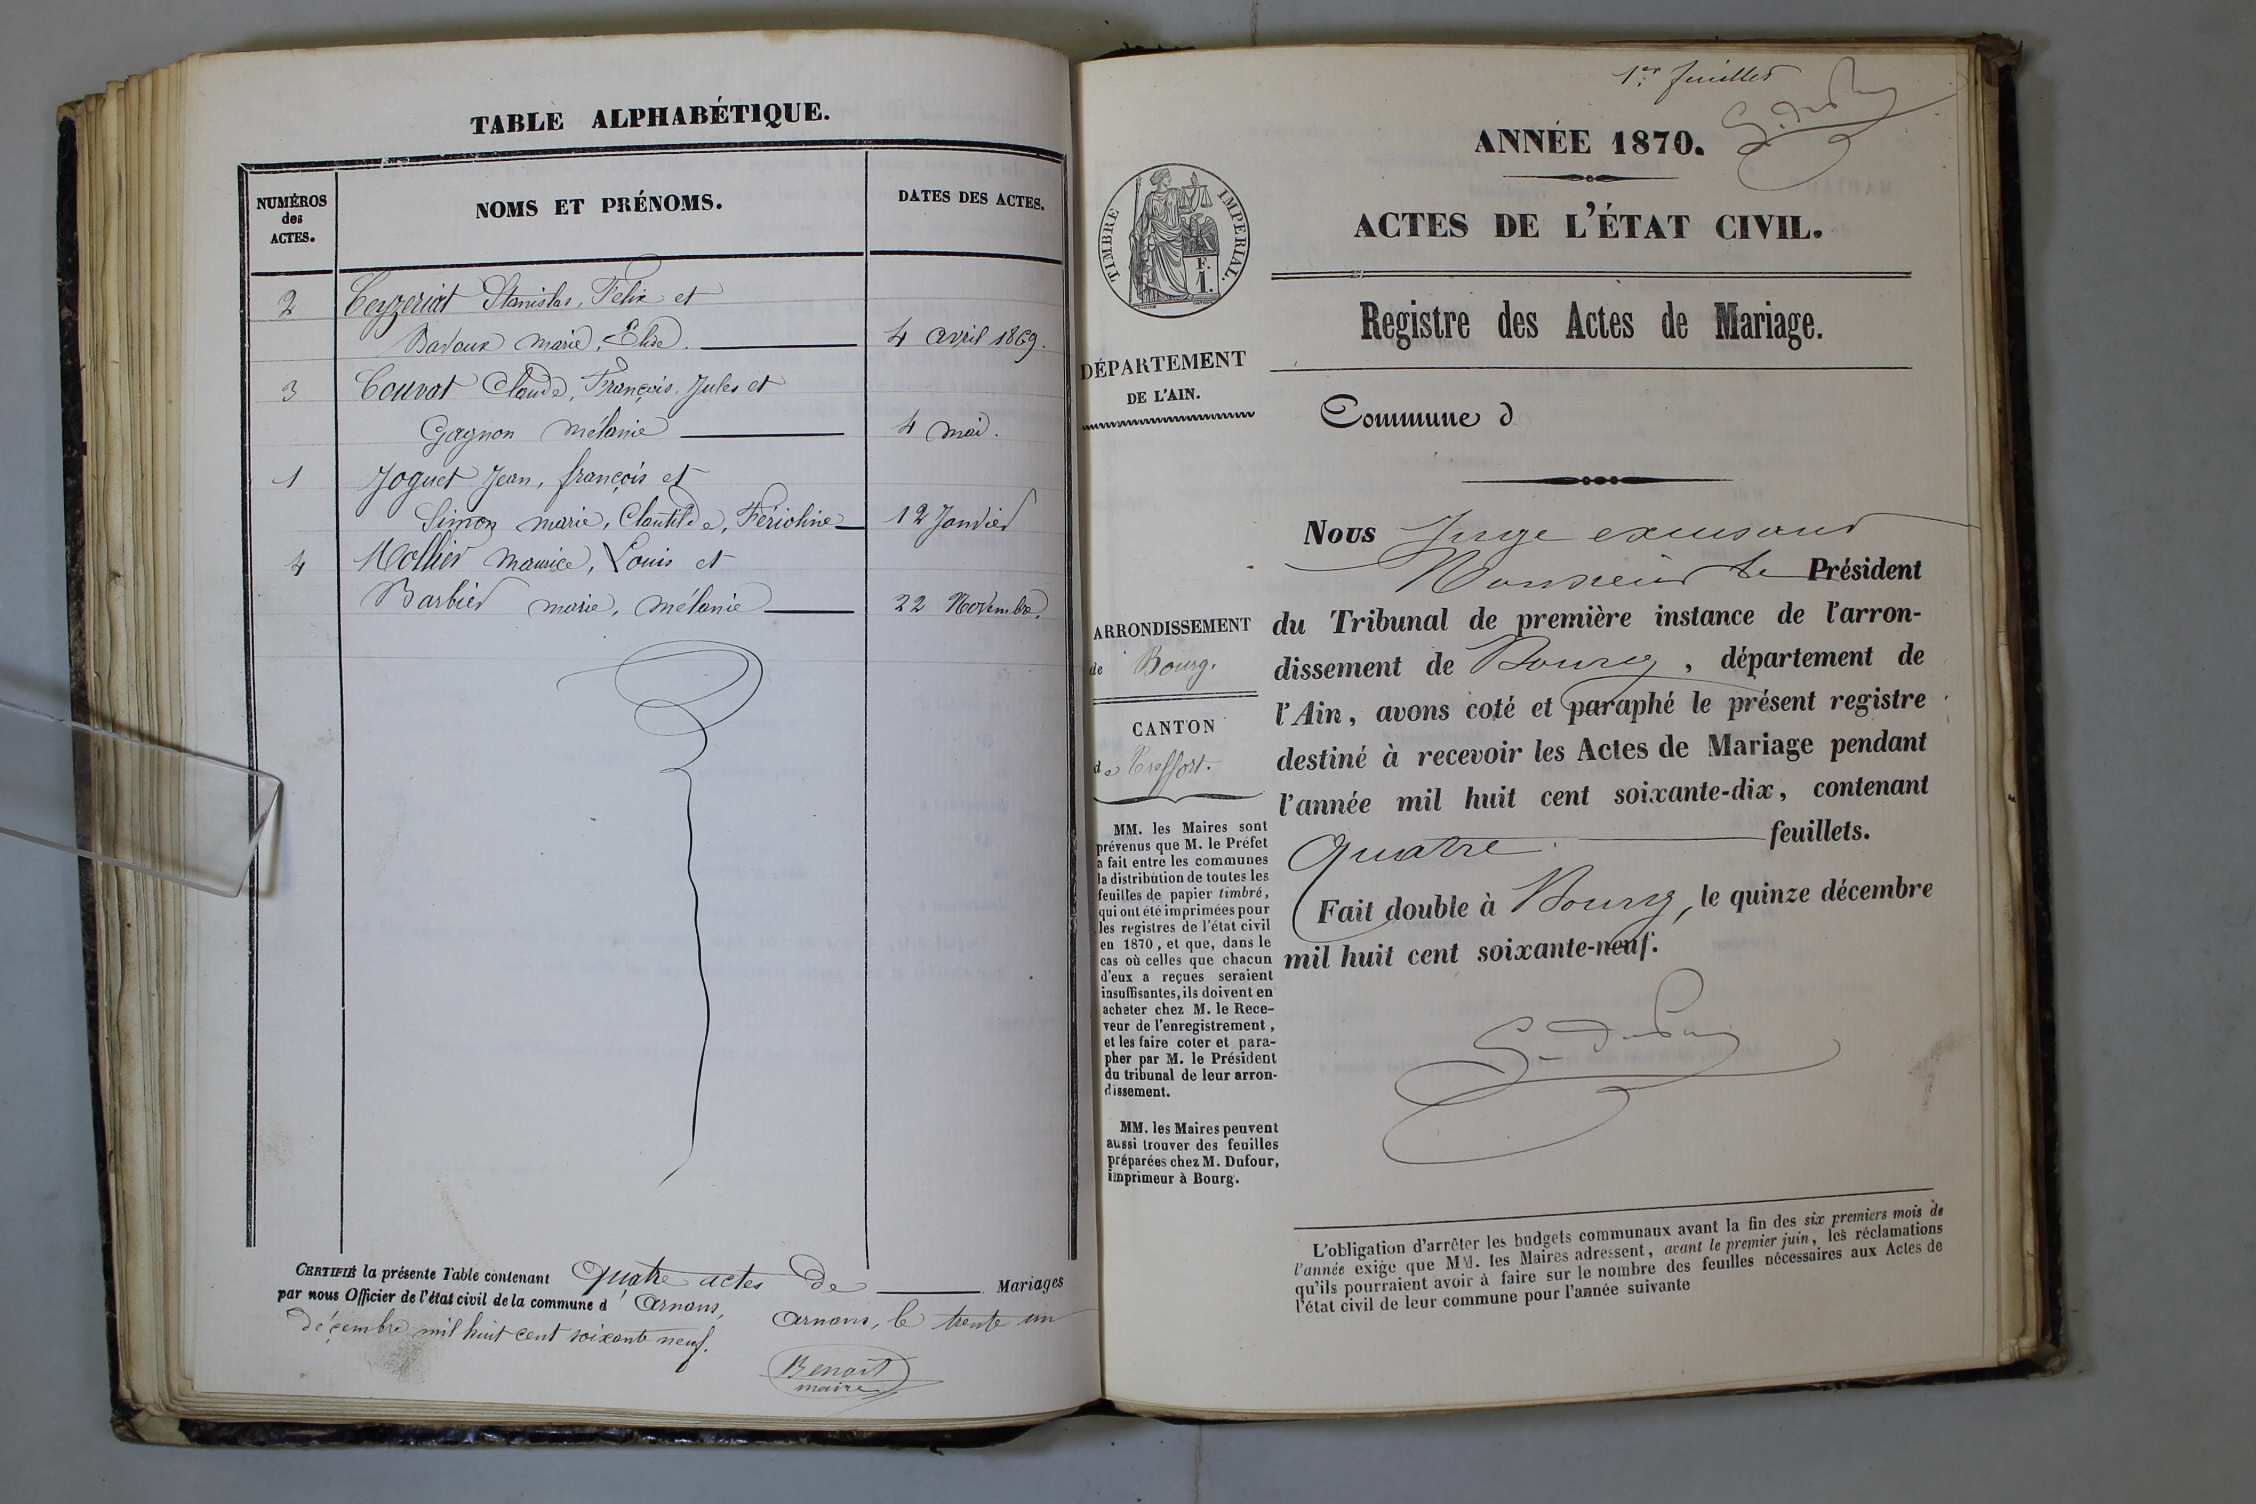 TABLE ALPHABÉTIQUE.
NUMÉROS
des
ACTES.
NOMS ET PRÉNOMS.
DATES DES ACTES.
2 Ceyzeriat Stanislas, Félix et
Badoux marie, Elise. 4 avril 1869.
3 Couvat Claude, François, Jules et
Gagnon mélanie 4 mai.
1 Joguet Jean, françois et
Simon marie, Clautilde, 12 Janvier
4 Mollier maurice, Louis et
Barbier marie, mélanie 22 Novembre.
CERTIFIÉ la présente Table contenant quatre actes de Mariages
par nous Officier de l'état civil de la commune d'arnans,
arnans, le trente un
décembre mil huit cent soixante neuf.
Benoit
maire
1er feuillet
ANNÉE 1870.
ACTES DE L'ÉTAT CIVIL.
TIMBRE IMPERIAL.
F.
1.
Registre des Actes de Mariage.
DÉPARTEMENT
DE L'AIN.
Commune d
Nous Juge excusant
Monsieur le Président
du Tribunal de première instance de l'arron-
dissement de Bourg, département de
l'Ain, avons coté et paraphé le présent registre
destiné à recevoir les Actes de Mariage pendant
l'année mil huit cent soixante-dix, contenant
Quatre feuillets.
Fait double à Bourg, le quinze décembre
mil huit cent soixante-neuf.
ARRONDISSEMENT
de Bourg.
CANTON
de Treffort.
MM. les Maires sont
prévenus que M. le Préfet
a fait entre les communes
la distribution de toutes les
feuilles de papier timbré,
qui ont été imprimées pour
les registres de l'état civil
en 1870, et que, dans le
cas où celles que chacun
d'eux a reçues seraient
insuffisantes, ils doivent en
acheter chez M. le Rece-
veur de l'enregistrement,
et les faire coter et para-
pher par M. le Président
du tribunal de leur arron-
dissement.
MM. les Maires peuvent
aussi trouver des feuilles
préparées chez M. Dufour,
imprimeur à Bourg.
L'obligation d'arrêter les budgets communaux avant la fin des six premiers mois de
l'année exige que MM. les Maires adressent, avant le premier juin, les réclamations
qu'ils pourraient avoir à faire sur le nombre des feuilles nécessaires aux Actes de
l'état civil de leur commune pour l'année suivante